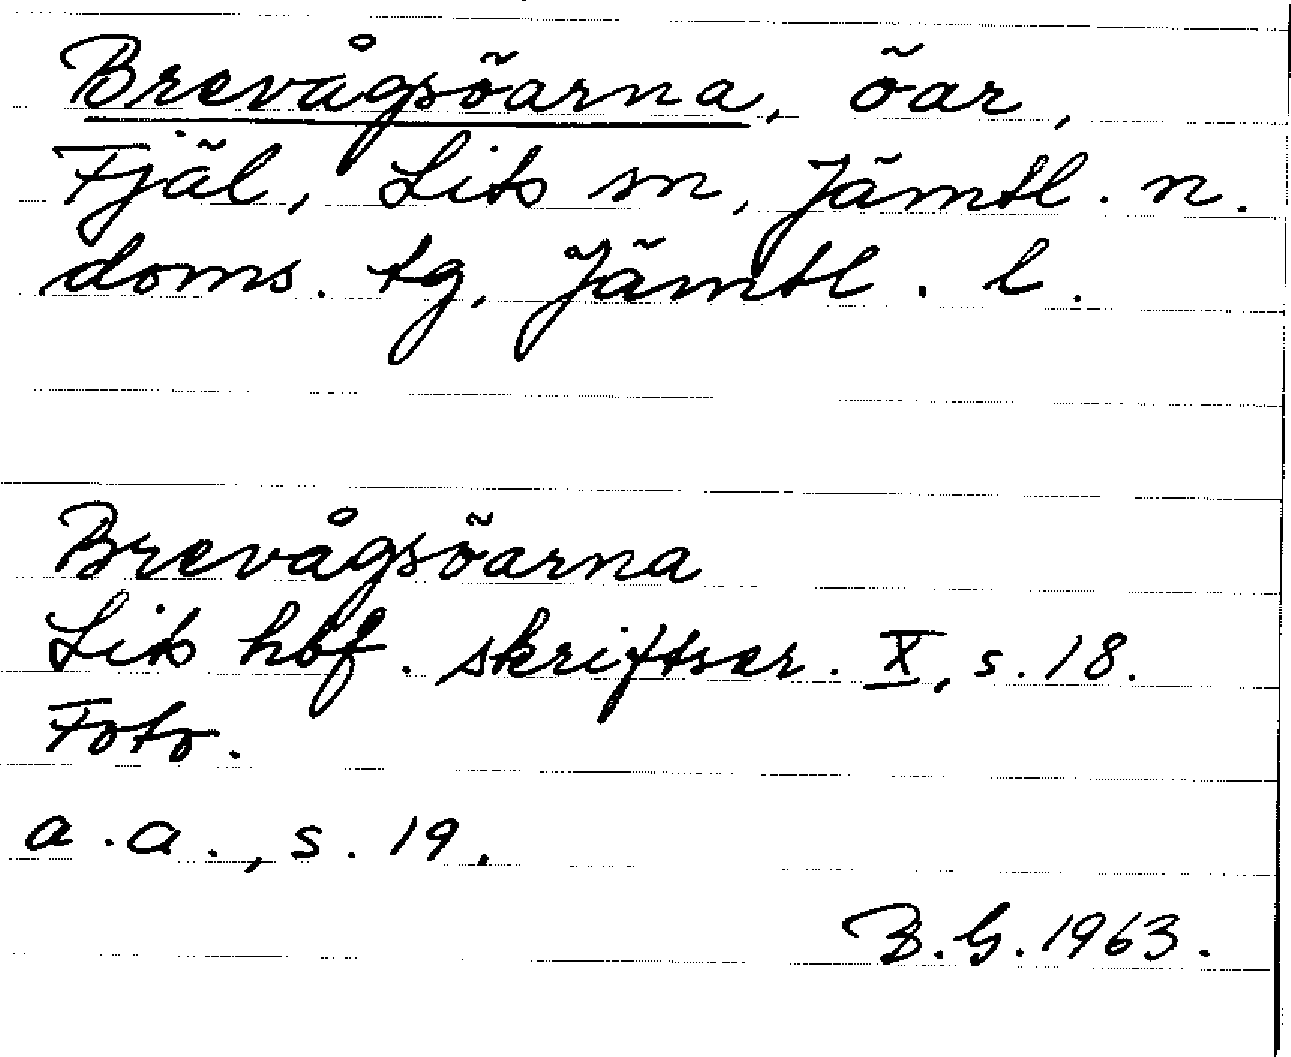 Brevågsöarna, öar,
Fjäl, Lits sn, Jämtl. n.
doms. tg, Jämtl. l.
Brevågsöarna
Lits hbf. skriftser. X, s. 18.
Foto.
a.a., s. 19.
B.G. 1963.